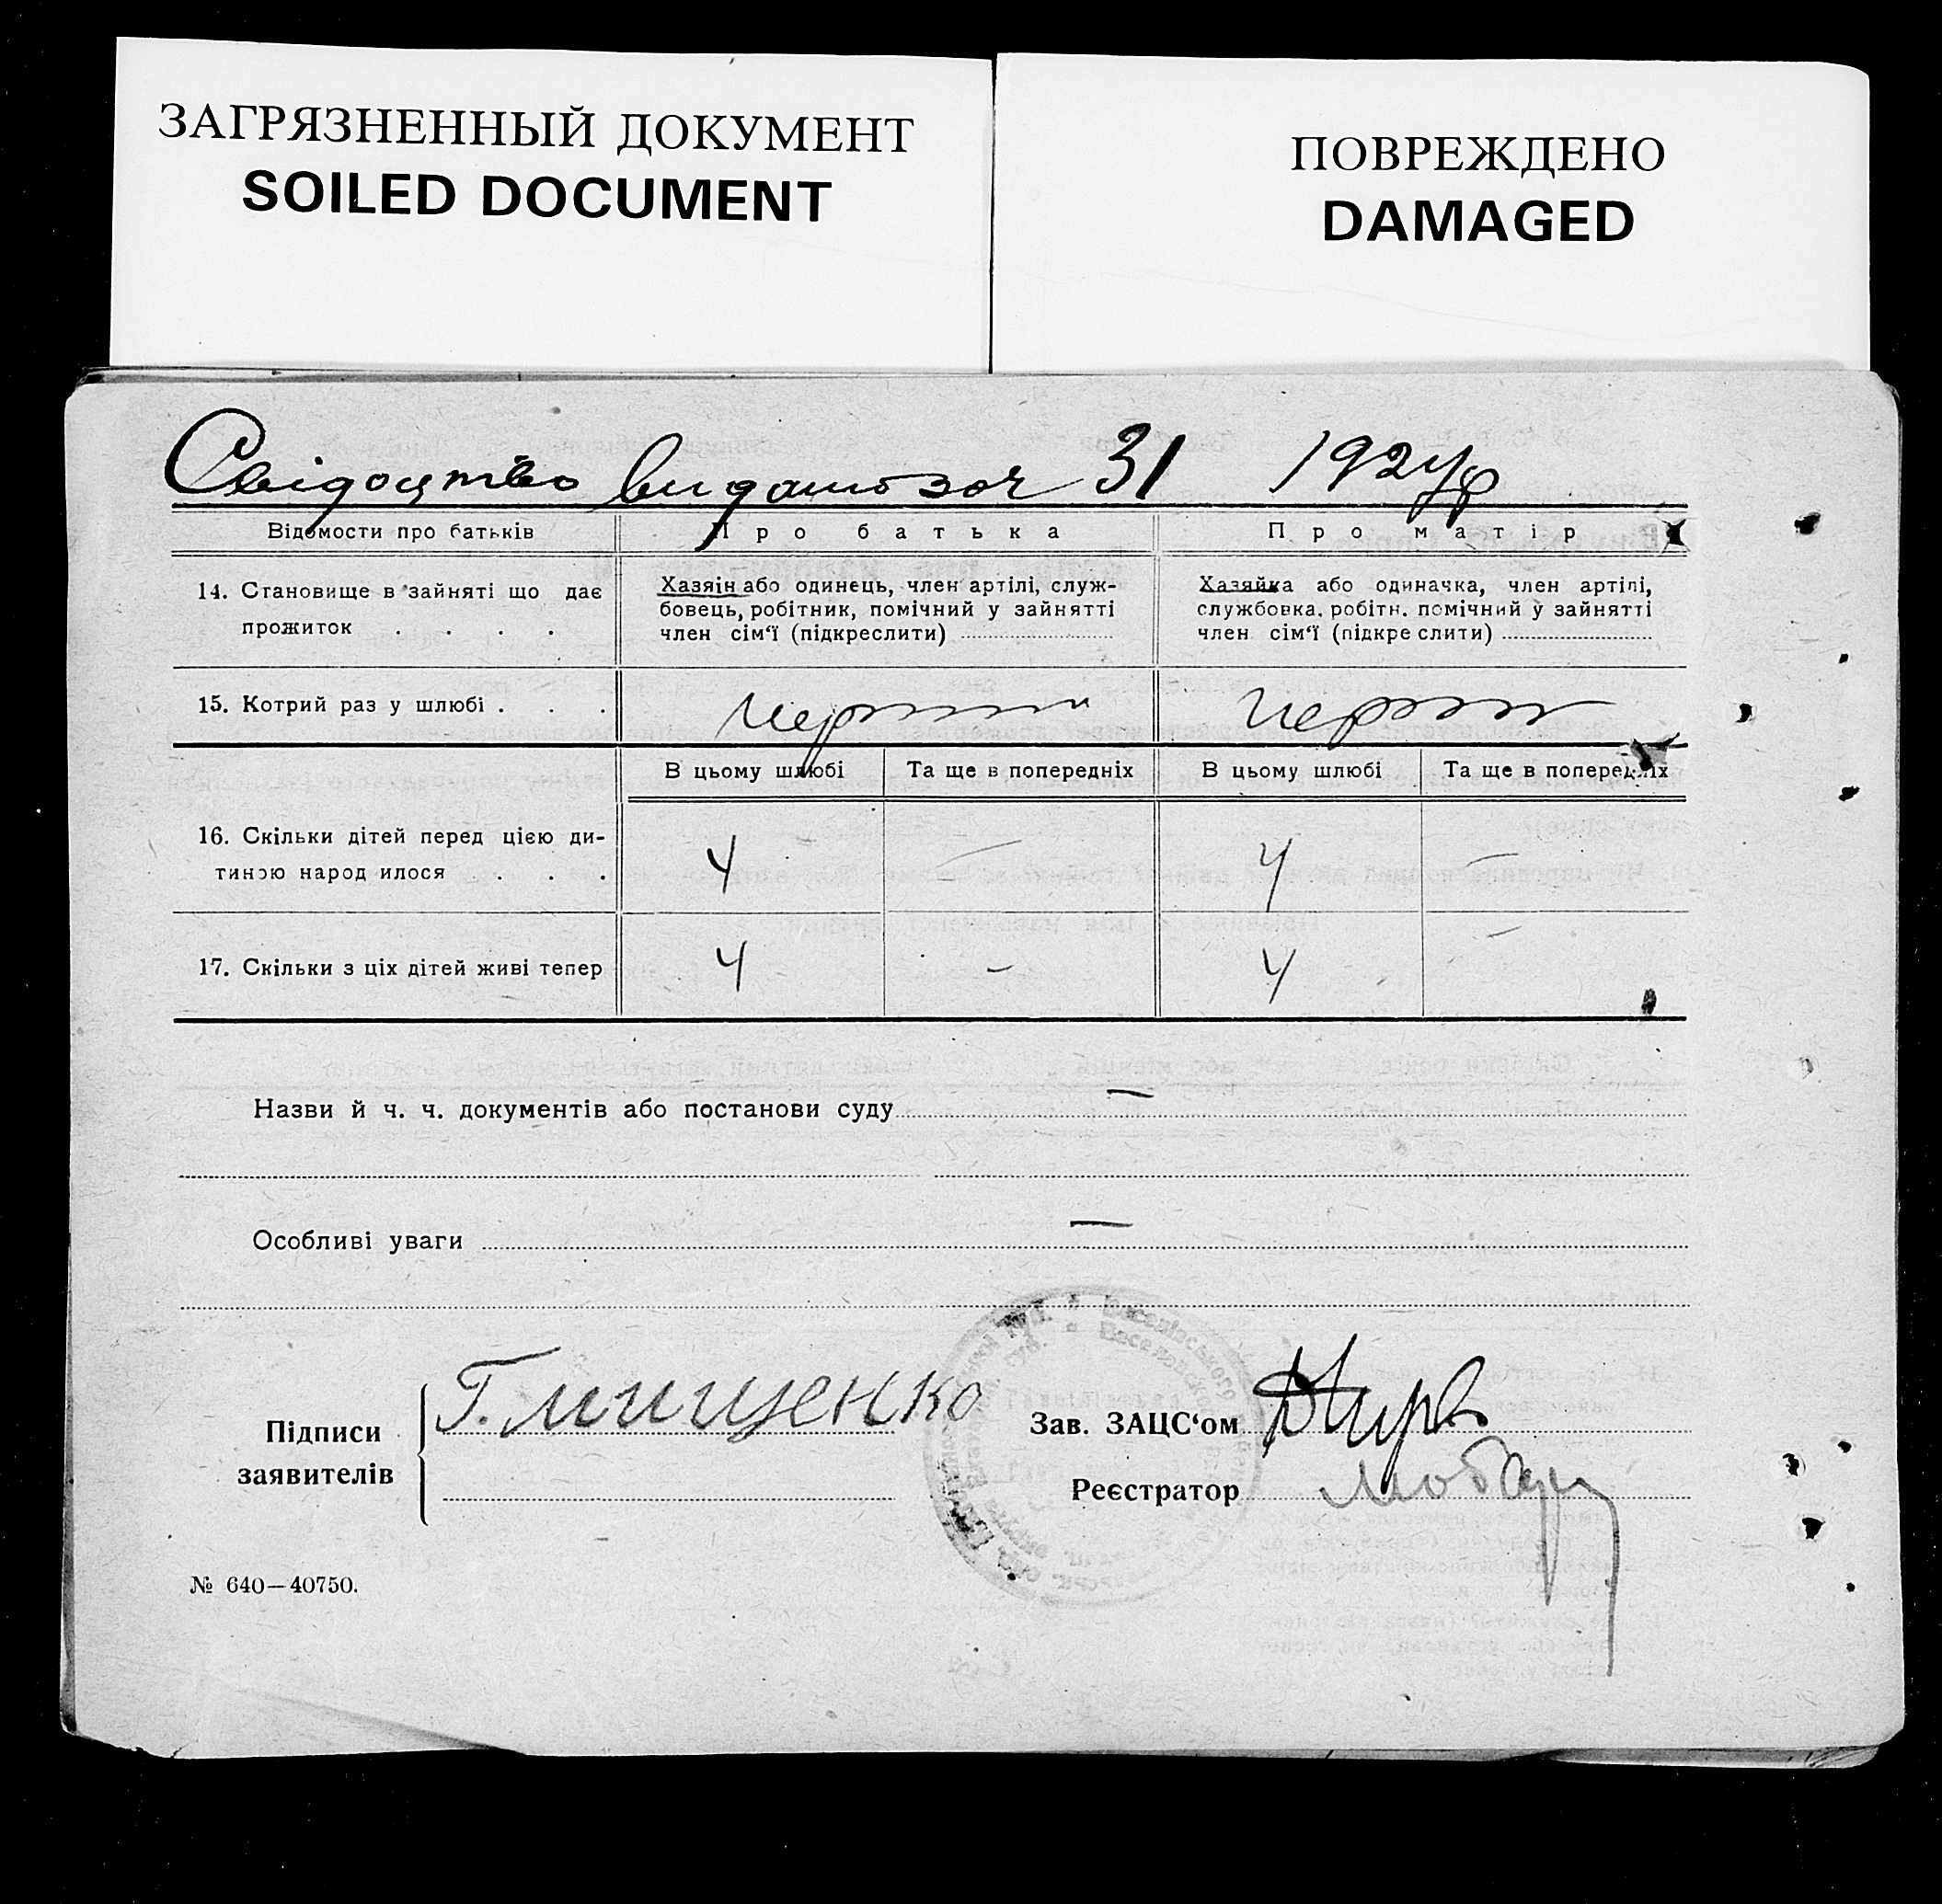 ЗАГРЯЗНЕННЫЙ ДОКУМЕНТ
SOILED DOCUMENT
ПОВРЕЖДЕНО
DAMAGED
Свідоцтво видано за ч 31 192
Відомости про батьків Про батька Про матір
14. Становище в зайняті що дає
прожиток . . . .
Хазяін або одинець, член артілі, служ-
бовець, робітник, помічний у зайнятті
член сім‘ї (підкреслити)
Хазяйка або одиначка, член артілі,
службовка, робітн. помічний у зайнятті
член сім‘ї (підкреслити)
15. Котрий раз у шлюбі . . .
перший перший
В цьому шлюбі Та ще в попередніх В цьому шлюбі Та ще в попередніх
16. Скільки дітей перед цією ди-
тиною народ илося . . .
4 — 4 —
17. Скільки з ціх дітей живі тепер 4 – 4 –
Назви й ч. ч. документів або постанови суду —
Особливі уваги —
Підписи
заявителів
Г. Мищенко
Зав. ЗАЦС‘ом
Реєстратор
№ 640—40750.